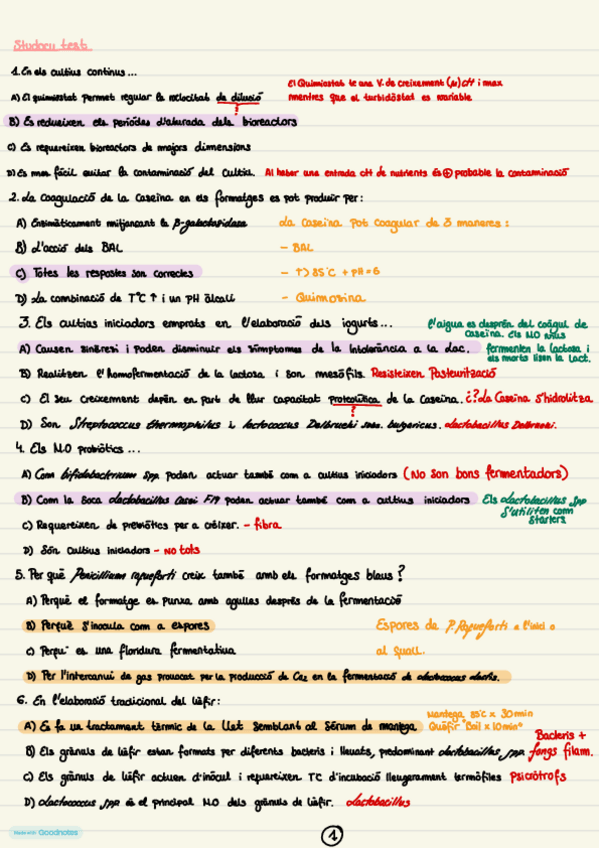 Studocu test
1. En els cultius continus...
A) El quimiostat permet regular la velocitat de dilució
?
El Quimiostat te una V. de creixement (µ) ctt i max
mentres que el turbidòstat es variable
B) Es redueixen els períodes d'aturada dels bioreactors
C) Es requereixen bioreactors de majors dimensions
D) Es mes fácil evitar la contaminació del Cultiu. Al haber una entrada ctt de nutrients és ⊕ probable la contaminació
2. La Coagulació de la Caseïna en els formatges es pot produir per:
A) Enzimàticament mitjançant la β-galactosidasa
La Caseïna pot coagular de 3 maneres:
B) L'acció dels BAL
- BAL
C) Totes les respostes son correctes
- ↑) 85°C + pH=6
D) La combinació de T°C ↑ i un pH àlcali
- Quimosina
3. Els cultius iniciadors emprats en l'elaboració dels iogurts...
l'aigua es desprèn del coàgul de
caseïna. Els MO vius
A) Causen sinèresi i poden disminuir els símptomes de la intolerància a la lac.
fermenten la lactosa i
els morts lisen la lact.
B) Realitzen l'homofermentació de la lactosa i son mesófils. Resisteixen Pasteurització
C) El seu creixement depèn en part de llur capacitat proteolítica de la Caseïna. ¿? La Caseïna s'hidrolitza
?
D) Son Streptococcus thermophilus i lactococcus Delbrueki bulgaricus. Lactobacillus Delbrueki.
4. Els MO probiòtics...
A) Com bifidobacterium spp poden actuar també com a cultius iniciadors (No son bons fermentadors)
B) Com la Soca Lactobacillus Casei F19 poden actuar també com a cultius iniciadors
Els Lactobacillus spp
S'utilitzen com
Starters
C) Requereixen de prebiòtics per a créixer. - fibra
D) Són Cultius iniciadors - No tots
5. Per què Penicillium roqueforti creix també amb els formatges blaus?
A) Perquè el formatge es punxa amb agulles després de la fermentació
B) Perquè s'inocula com a espores
Espores de P. Roqueforti a l'inici o
al final.
C) Perqu' es una floridura fermentativa
D) Per l'intercanvi de gas provocat per la producció de Co2 en la fermentació de lactococcus
6. En l'elaboració tradicional del kèfir:
Mantega 85°C x 30min
Quèfir "Boil x 10min"
A) Es fa un tractament tèrmic de la llet semblant al sèrum de mantega
B) Els grànuls de kèfir estan formats per diferents bacteris i llevats, predominant lactobacillus spp
Bacteris +
fongs filam.
C) Els grànuls de kèfir actuen d'inòcul i requereixen TC d'incubació lleugerament termòfiles Psicròtrofs
D) Lactococcus spp és el principal MO dels grànuls de kèfir. Lactobacillus
Made with Goodnotes
1